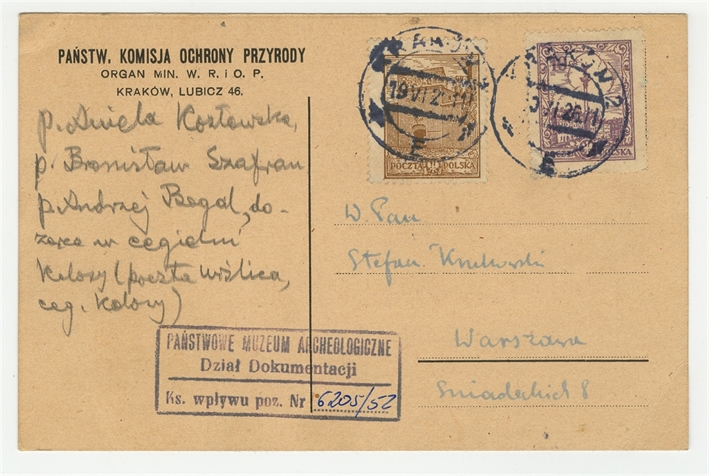 PAŃSTW. KOMISJA OCHRONY PRZYRODY
ORGAN MIN. W. R. i O. P.
KRAKÓW, LUBICZ 46.
p. Aniela Kozłowska,
p. Bronisław Szafran
p. Andrzej Begal, do-
zorca w cegielni
Kolosy (poczta Wiślica,
ceg. Kolosy)
KRAKÓW 2
19 VI 26
E
POCZTA POLSKA
KRAKÓW 2
VI 26 11
E
W. Pan
Stefan Krukowski
Warszawa
Śniadeckich 8
PAŃSTWOWE MUZEUM ARCHEOLOGICZNE
Dział Dokumentacji
Ks. wpływu poz. Nr 6205/52